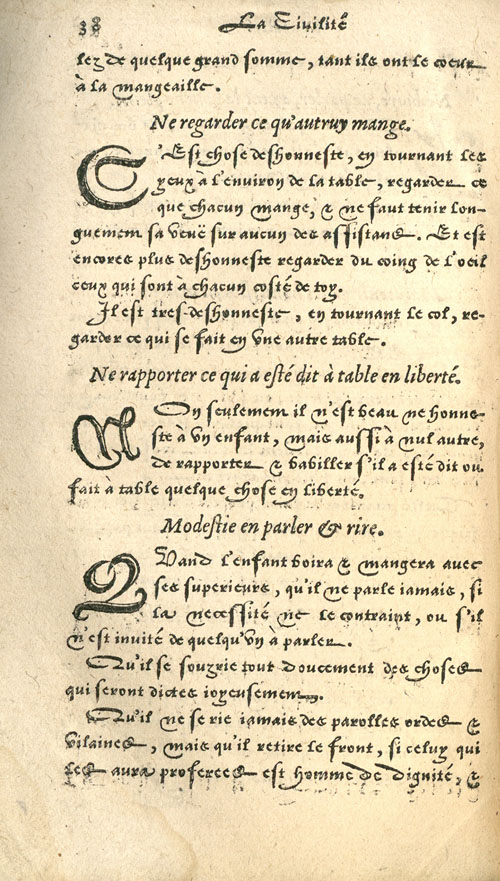 38 La Ciuilité
lez de quelque grand somme, tant ils ont le coeur
à la mangeaille.
Ne regarder ce qu'autruy mange.
C'Est chose deshonneste, en tournant les
yeux à l'environ de la table, regarder ce
que chacun mange, & ne faut tenir lon-
guement sa veuë sur aucun des assistans. Et est
encores plus deshonneste regarder du coing de l'oeil
ceux qui sont à chacun costé de toy.
Il est tres-deshonneste, en tournant le col, re-
garder ce qui se fait en vne autre table.
Ne rapporter ce qui a esté dit à table en liberté.
NOn seulement il n'est beau ne honne-
ste à vn enfant, mais aussi à nul autre,
de rapporter & babiller s'il a esté dit ou
fait à table quelque chose en liberté.
Modestie en parler & rire.
QVand l'enfant boira & mangera avec
ses superieurs, qu'il ne parle iamais, si
la necessité ne le contraint, ou s'il
n'est invité de quelqu'vn à parler.
Qu'il se soubzrie tout doucement des choses
qui seront dictes ioyeusement.
Qu'il ne se rie iamais des parolles ordes &
vilaines, mais qu'il retire le front, si celuy qui
les aura proferees est homme de dignité, &